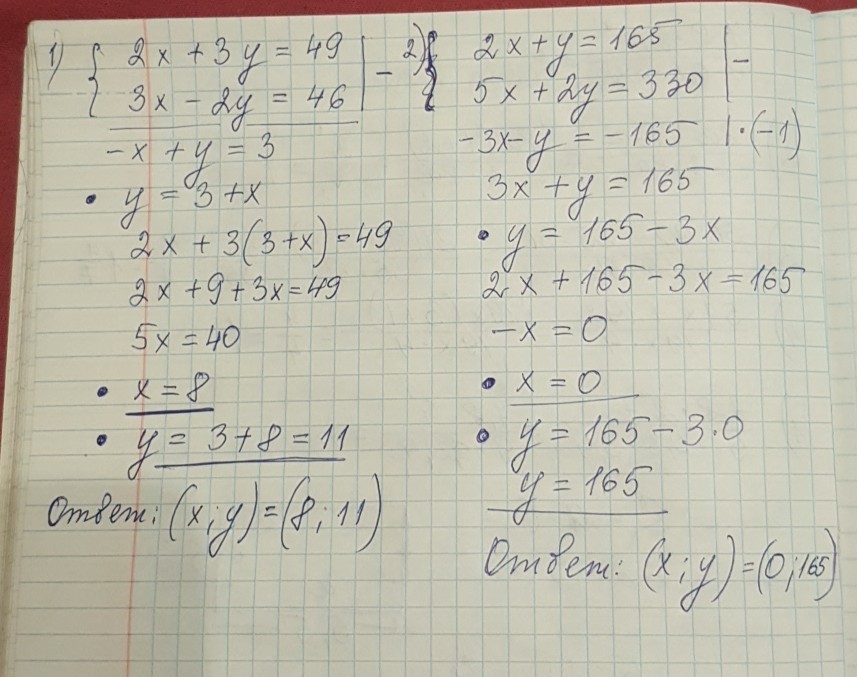 1) { 2x + 3y = 49
3x - 2y = 46 | -
-x + y = 3
• y = 3 + x
2x + 3(3+x) = 49
2x + 9 + 3x = 49
5x = 40
• x = 8
• y = 3 + 8 = 11
Ответ: (x; y) = (8; 11)
2) { 2x + y = 165
5x + 2y = 330 | -
-3x - y = -165 | · (-1)
3x + y = 165
• y = 165 - 3x
2x + 165 - 3x = 165
-x = 0
• x = 0
• y = 165 - 3·0
y = 165
Ответ: (x; y) = (0; 165)